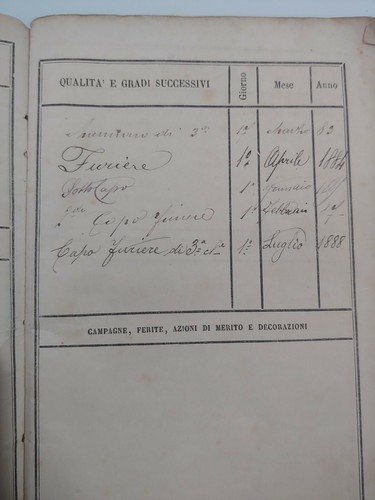 QUALITA' E GRADI SUCCESSIVI Giorno Mese Anno
di 3ª 1º Marzo 83
Furiere 1º Aprile 1884
Sotto Capo 1º Gennaio
Capo furiere 1º Febbraio
Capo furiere di 3ª cl. 1º Luglio 1888
CAMPAGNE, FERITE, AZIONI DI MERITO E DECORAZIONI